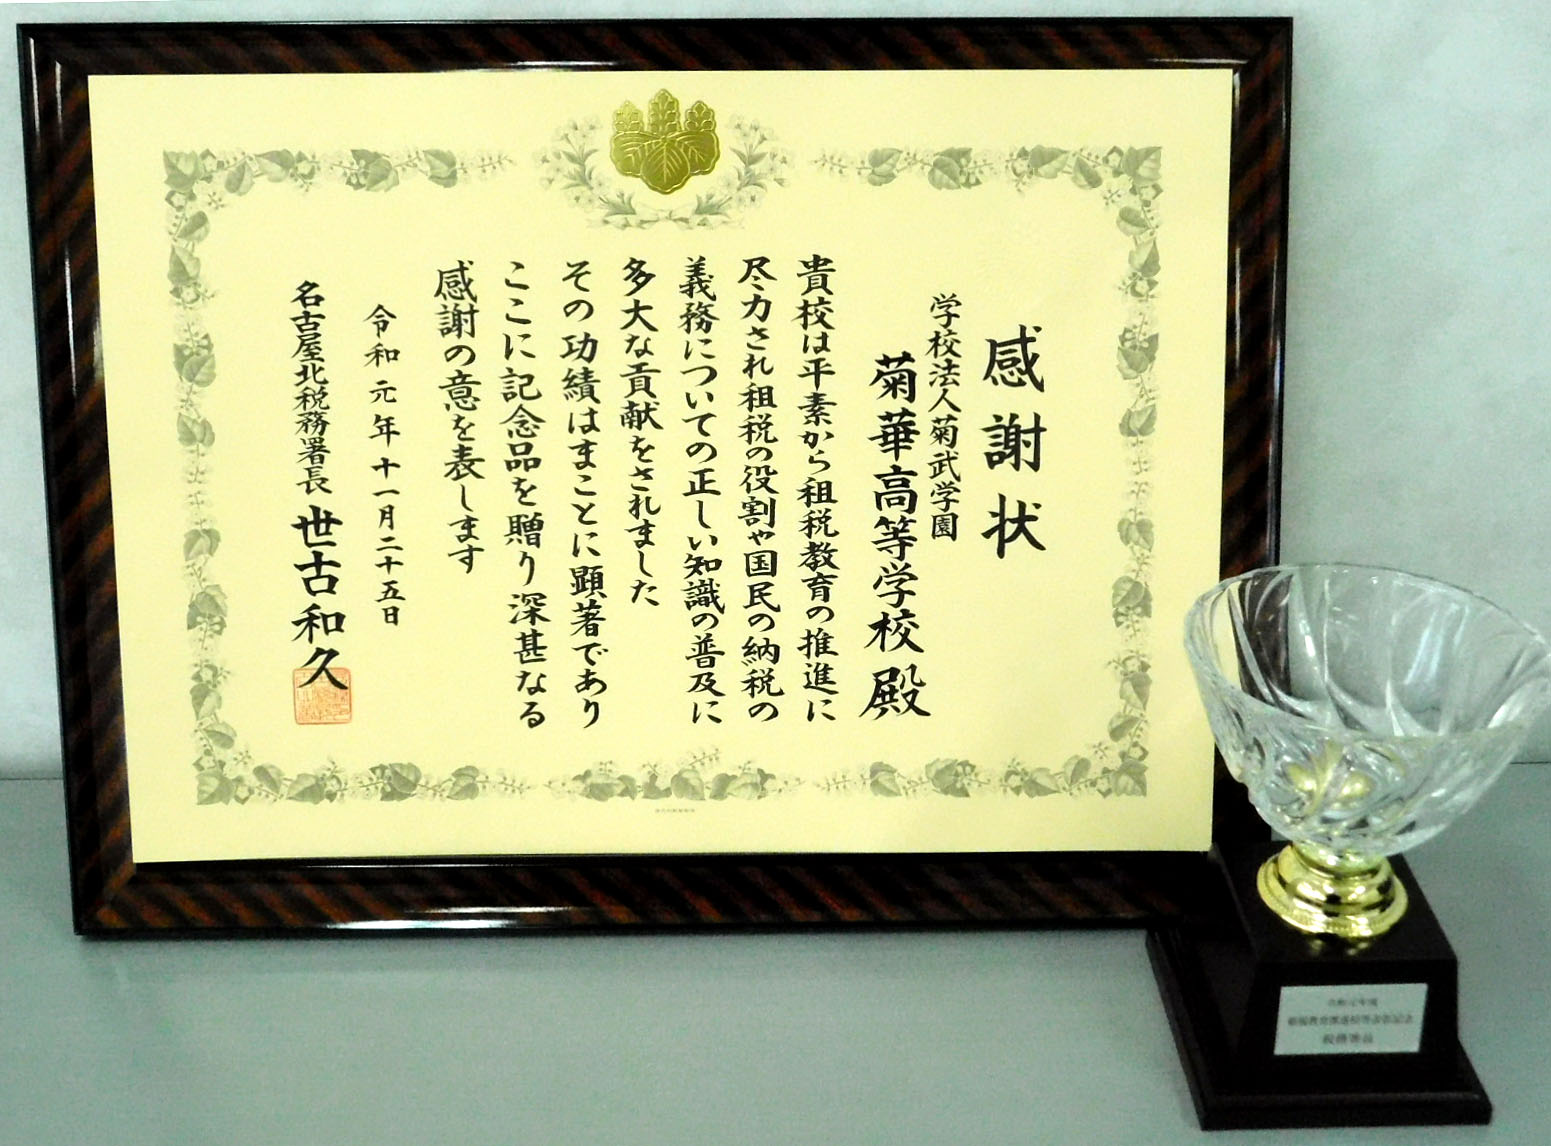 感謝状
学校法人菊武学園
菊華高等学校殿
貴校は平素から租税教育の推進に
尽力され租税の役割や国民の納税の
義務についての正しい知識の普及に
多大な貢献をされました
その功績はまことに顕著であり
ここに記念品を贈り深甚なる
感謝の意を表します
令和元年十一月二十五日
名古屋北税務署長 世古和久
令和元年度
租税教育推進校等表彰記念
税務署長